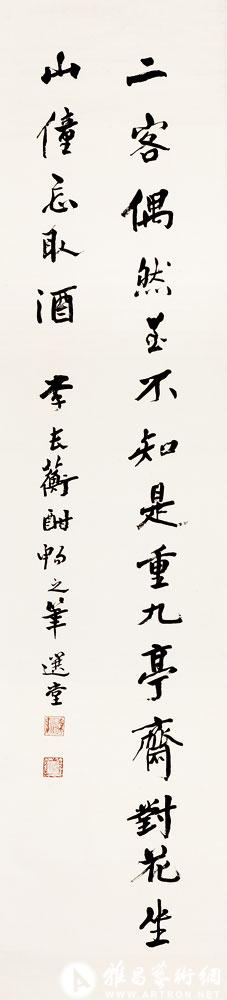 二客偶然至不知是重九亭齋對花坐
山僮忘取酒 李長蘅酣暢之筆 選堂
雅昌藝術網
WWW.ARTRON.NET